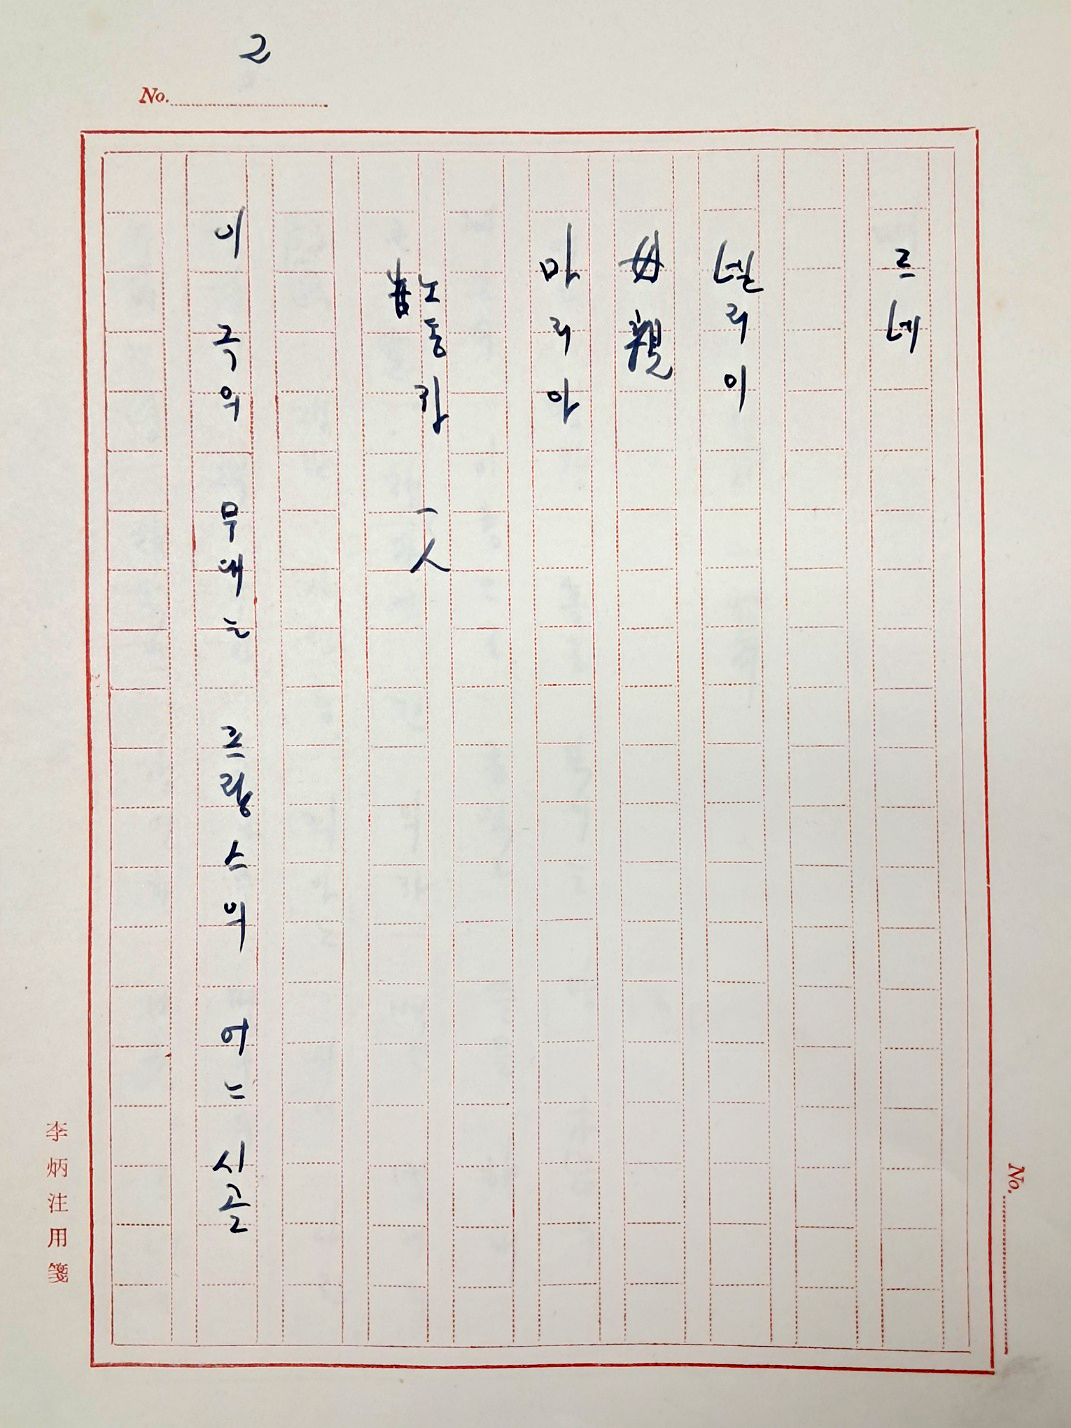 2
No.
르네
넬리이
母親
마리아
노동자 一人
이 극의 무대는 프랑스의 어느 시골
李炳注用箋
No.